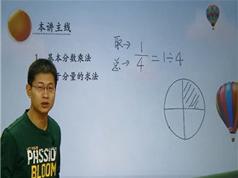 本讲主线
1、基本分数乘法
于分量的求法
取→ 1/4 = 1÷4
总→
PASSION
BLOOM